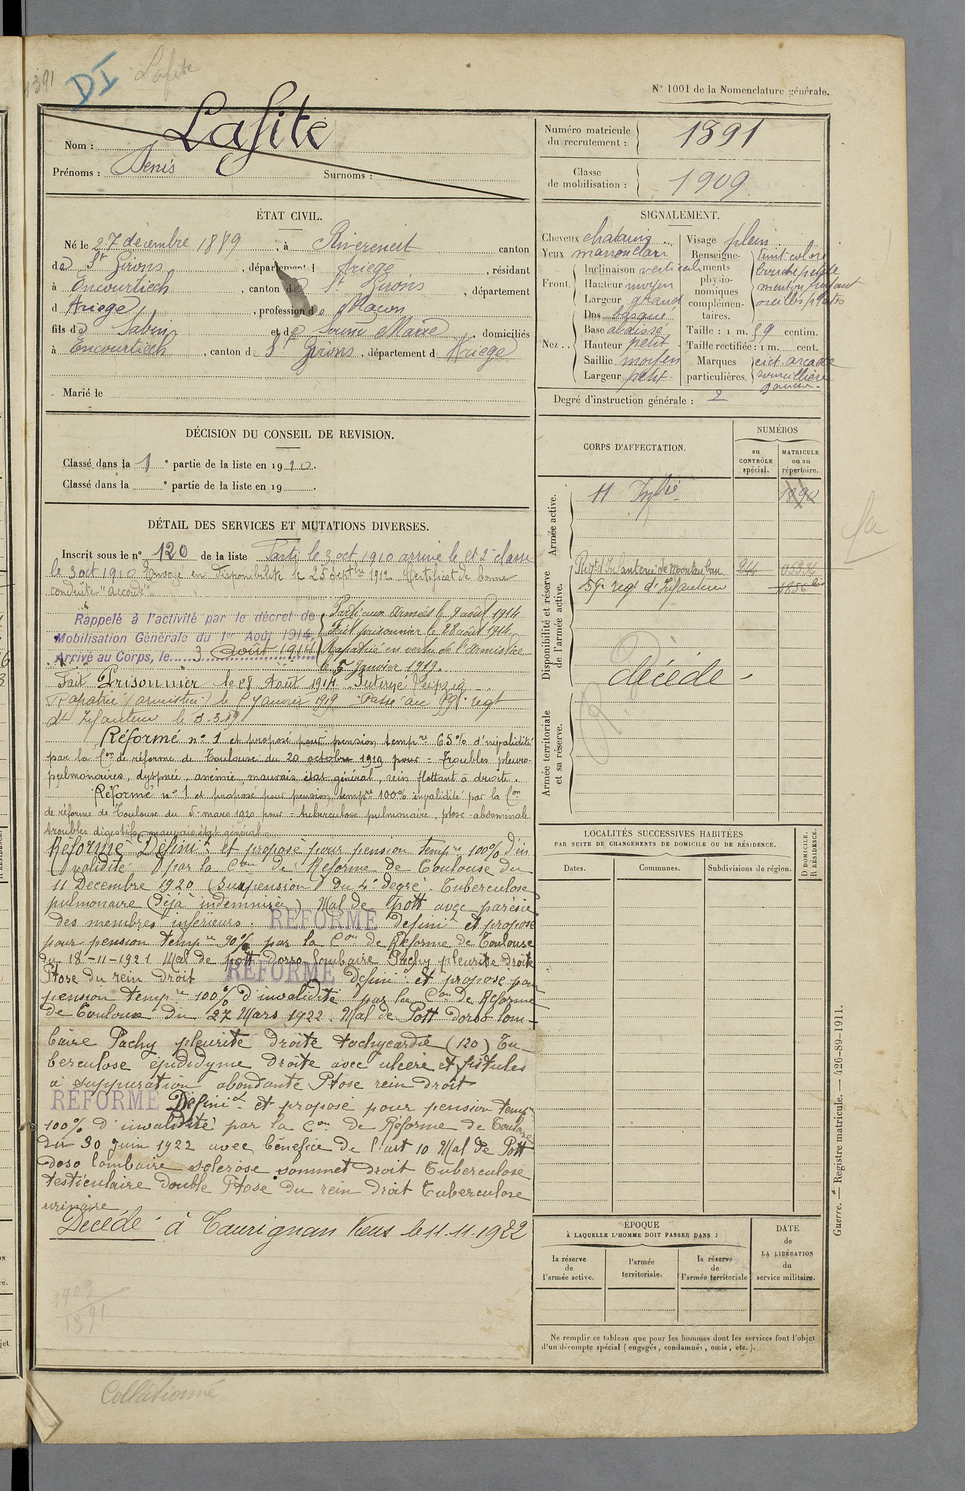 1391
DI
Lafite
N° 1001 de la Nomenclature générale.
Nom : Lafite
Prénoms : Denis Surnoms :
Numéro matricule du recrutement : 1391
Classe de mobilisation : 1909
ÉTAT CIVIL.
Né le 27 décembre 1889, à Rivèrenert canton
de St Girons, département d Ariège, résidant
à Encourtiech, canton de St Girons, département
d Ariège, profession de Macon
fils de Sabin et de Souun Marie domiciliés
à Encourtiech, canton de St Girons, département d Ariège
Marié le
SIGNALEMENT.
Cheveux chatains
Yeux marron clair
Front. Inclinaison verticale
Hauteur moyen
Largeur grand
Nez. Dos busqué
Base abaissé
Hauteur petit
Saillie moyen
Largeur petit
Visage plein
Renseignements physionomiques complémentaires. teint coloré
bouche petite
menton fuyant
oreilles plates
Taille : 1 m. 59 centim.
Taille rectifiée : 1 m. cent.
Marques particulières. cict. arcade
sourcillière
gauche.
Degré d'instruction générale : 2
DÉCISION DU CONSEIL DE REVISION.
Classé dans la 1e partie de la liste en 1910.
Classé dans la e partie de la liste en 19 .
DÉTAIL DES SERVICES ET MUTATIONS DIVERSES.
Inscrit sous le n° 120 de la liste Parti le 3 oct 1910 arrivé le et 2e classe
le 3 oct 1910 Envoyé en disponibilité le 25 septbre 1912. Certificat de bonne
conduite "accordé"
Rappelé à l'activité par le décret de
Mobilisation Générale du 1er Août 1914,
Arrivé au Corps, le 3 août 1914
Parti aux armées le 9 août 1914
Fait prisonnier le 28 août 1914.
Rapatrié en vertu de l'armistice
le 5 Janvier 1919.
Fait Prisonnier le 28 Août 1914. Interné Leipzig
Rapatrié (armistice) le 5 Janvier 1919 Passé au 59e regt
d'Infanterie le 3.3.19
Réformé n° 1 et proposé pour pension tempre 65% d'invalidité
par la Con de réforme de Toulouse du 20 octobre 1919 pour = Troubles pleuro-
pulmonaires, dyspnée, anémie, mauvais état général, rein flottant à droite.
Réformé n° 1 et proposé pour pension tempre 100% invalidité par la Con
de réforme de Toulouse du 5 mars 1920 pour = tuberculose pulmonaire, ptose abdominale
troubles digestifs mauvais état général
Réformé Définit et proposé pour pension tempre 100% d'in
validité par la Con de Réforme de Toulouse du
11 Décembre 1920 (Suspension) du 4e degré. Tuberculose
pulmonaire (déjà indemnisée) Mal de Pott avec parésie
des membres inférieurs. RÉFORMÉ définit et proposé
pour pension tempre 90% par la Con de Réforme de Toulouse
du 18-11-1921 Mal de pott dorso lombaire Pachy pleurite droite
Ptose du rein droit RÉFORMÉ Définit et proposé pour
pension tempre 100% d'invalidité par la Con de Réforme
de Toulouse du 27 Mars 1922. Mal de Pott dorso lom-
baire Pachy pleurite droite tachycardie (120) Tu
berculose épididyme droite avec ulcère et fistules
à suppuration abondante Ptose rein droit
RÉFORMÉ Définit et proposé pour pension temp
100% d'invalidité par la Con de Réforme de Toulouse
du 30 juin 1922 avec bénéfice de l'art 10 Mal de Pott
doso lombaire sclérose sommet droit Tuberculose
testiculaire double Ptose du rein droit tuberculose
urinaire
Décédé à Taurignan Vieux le 11.11.1922
1909
1391
Collationné
CORPS D'AFFECTATION.
NUMÉROS
au CONTRÔLE spécial.
MATRICULE ou au répertoire.
Armée active.
11 Infrie
Disponibilité et réserve de l'armée active.
Regt d'Infanterie de Montauban 244
59e reg d'Infanterie
décédé
Armée territoriale et sa réserve.
LOCALITÉS SUCCESSIVES HABITÉES
PAR SUITE DE CHANGEMENTS DE DOMICILE OU DE RÉSIDENCE.
Dates. Communes. Subdivisions de région.
D DOMICILE.
R RÉSIDENCE.
ÉPOQUE
À LAQUELLE L'HOMME DOIT PASSER DANS :
la réserve de l'armée active.
l'armée territoriale.
la réserve de l'armée territoriale
DATE de LA LIBÉRATION du service militaire.
Ne remplir ce tableau que pour les hommes dont les services font l'objet
d'un décompte spécial (engagés, condamnés, omis, etc.).
Guerre. — Registre matricule. — 426-89-1911.